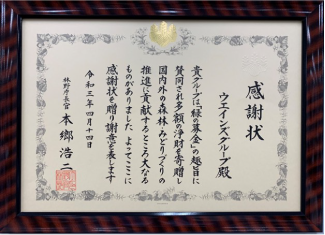 感謝状
ウエインズグループ殿
貴グループは「緑の募金」の趣旨に
賛同され多額の浄財を寄贈し
国内外の森林、みどりづくりの
推進に貢献するところ大なる
ものがありました よってここに
感謝状を贈り謝意を表します
令和三年四月十四日
林野庁長官 本郷浩二